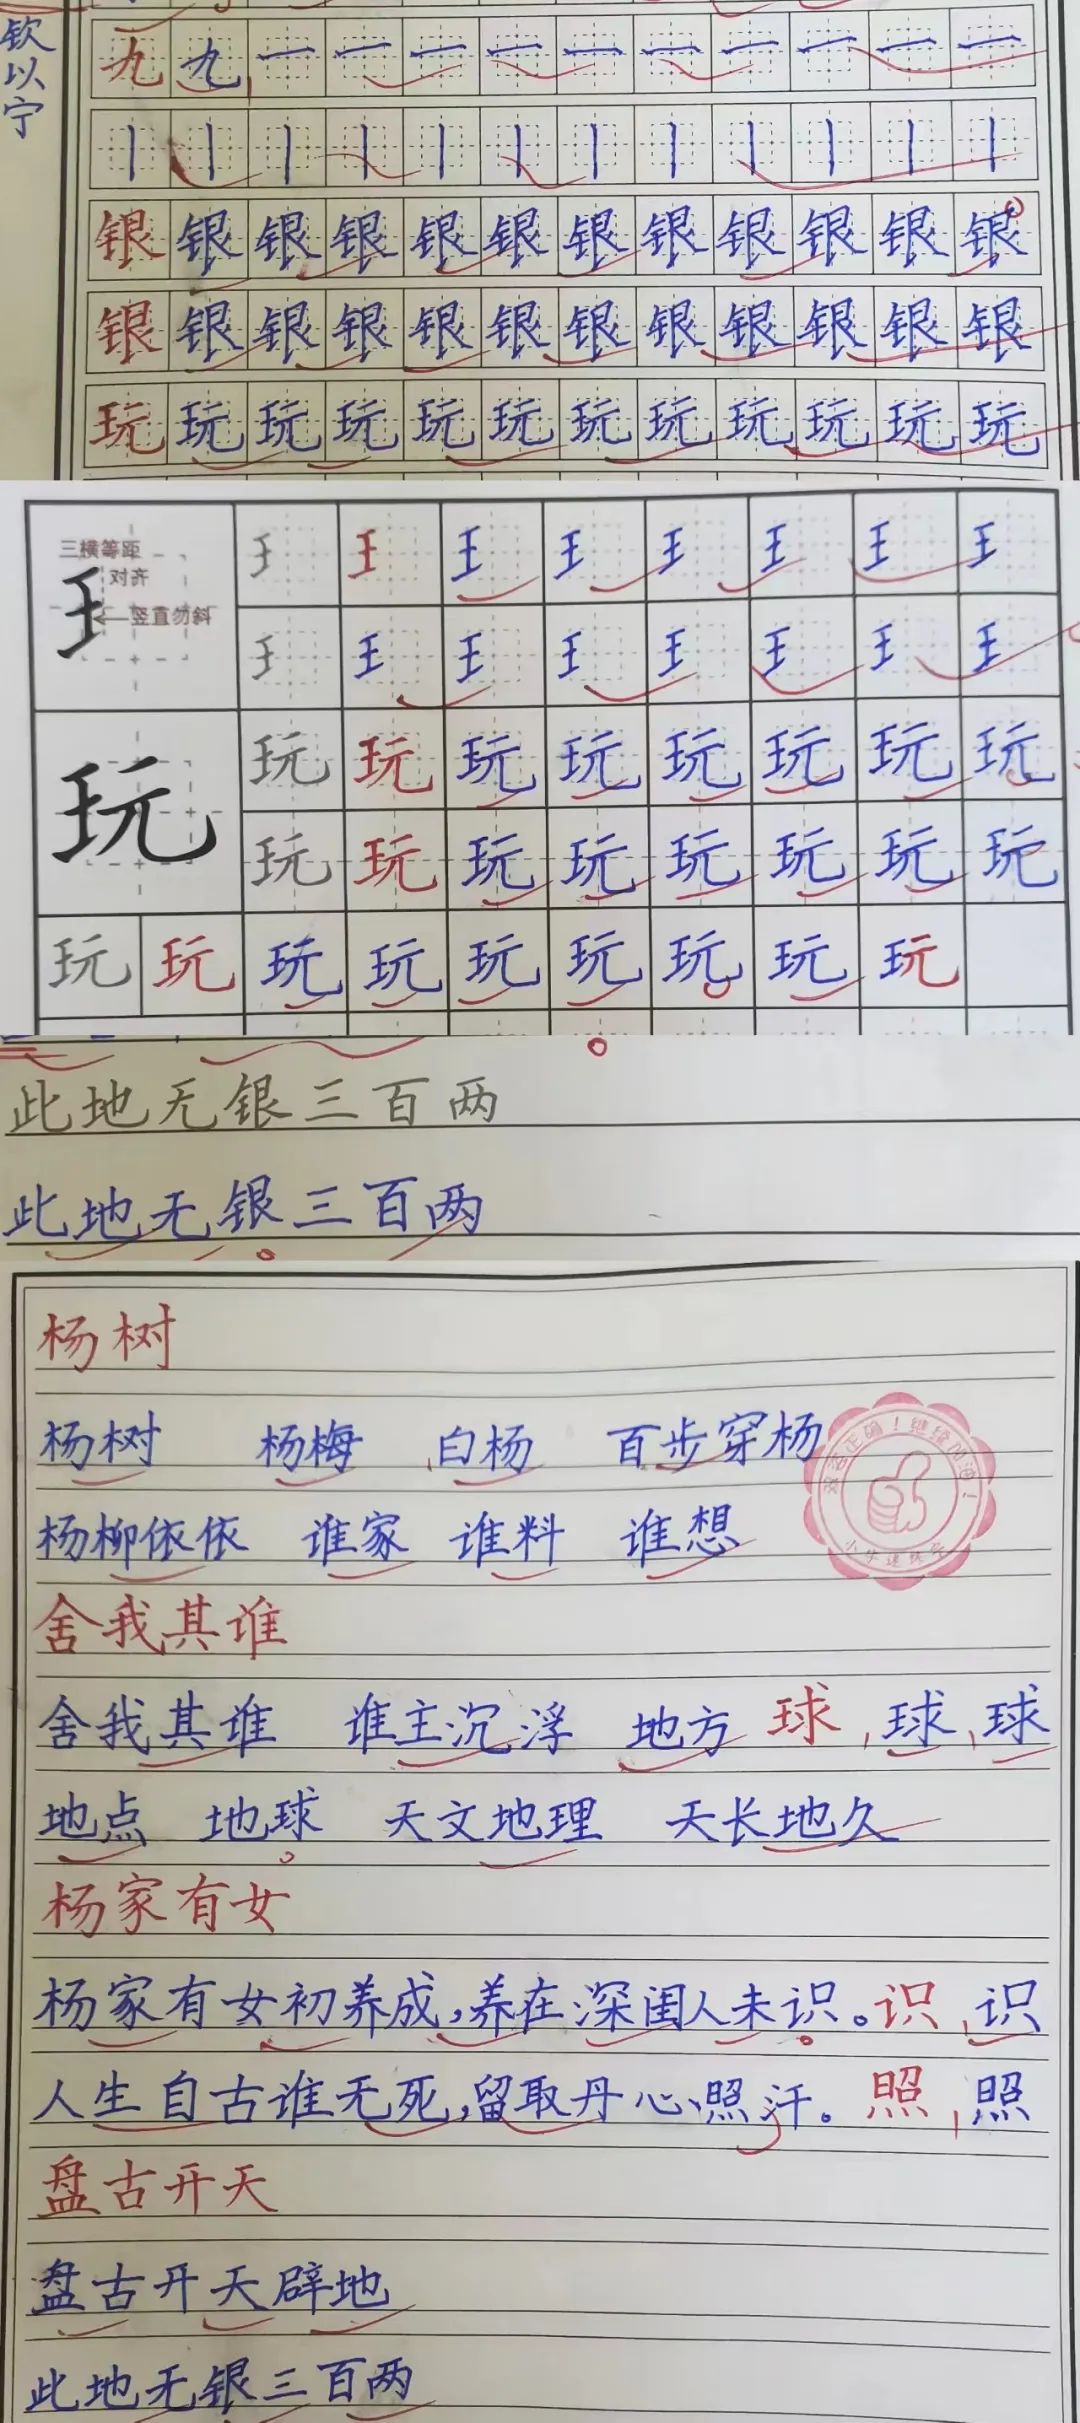 钦以宁
九九一一一一一一一一一一
丨丨丨丨丨丨丨丨丨丨丨丨
银银银银银银银银银银银银
银银银银银银银银银银银银
玩玩玩玩玩玩玩玩玩玩玩玩
三横等距
对齐
竖直勿斜
玩 玩玩玩玩玩玩玩玩
玩玩玩玩玩玩玩玩
玩玩玩玩玩玩玩玩玩
此地无银三百两
此地无银三百两
杨树
杨树 杨梅 白杨 百步穿杨
杨柳依依 谁家 谁料 谁想
舍我其谁
舍我其谁 谁主沉浮 地方 球 球 球
地点 地球 天文地理 天长地久
杨家有女
杨家有女初养成,养在深闺人未识。识 识
人生自古谁无死,留取丹心照汗。照 照
盘古开天
盘古开天辟地
此地无银三百两